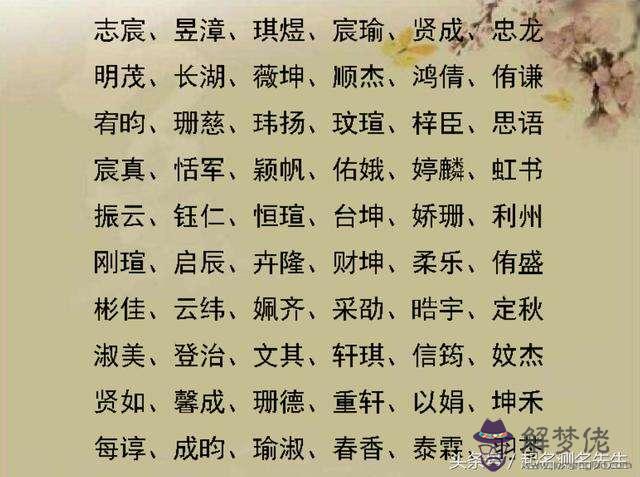 志宸、昱漳、琪煜、宸瑜、贤成、忠龙
明茂、长湖、薇坤、顺杰、鸿倩、侑谦
宥昀、珊慈、玮扬、玟瑄、梓臣、思语
宸真、恬军、颖帆、佑娥、婷麟、虹书
振云、钰仁、恒瑄、台坤、娇珊、利州
刚瑄、启辰、卉隆、财坤、柔乐、侑盛
彬佳、云纬、姵齐、采劭、晧宇、定秋
淑美、登治、文其、轩琪、信筠、妏杰
贤如、馨成、珊德、重轩、以娟、坤禾
每谆、成昀、瑜淑、春香、泰霖、羽
解梦佬
头条号/起名测名先生